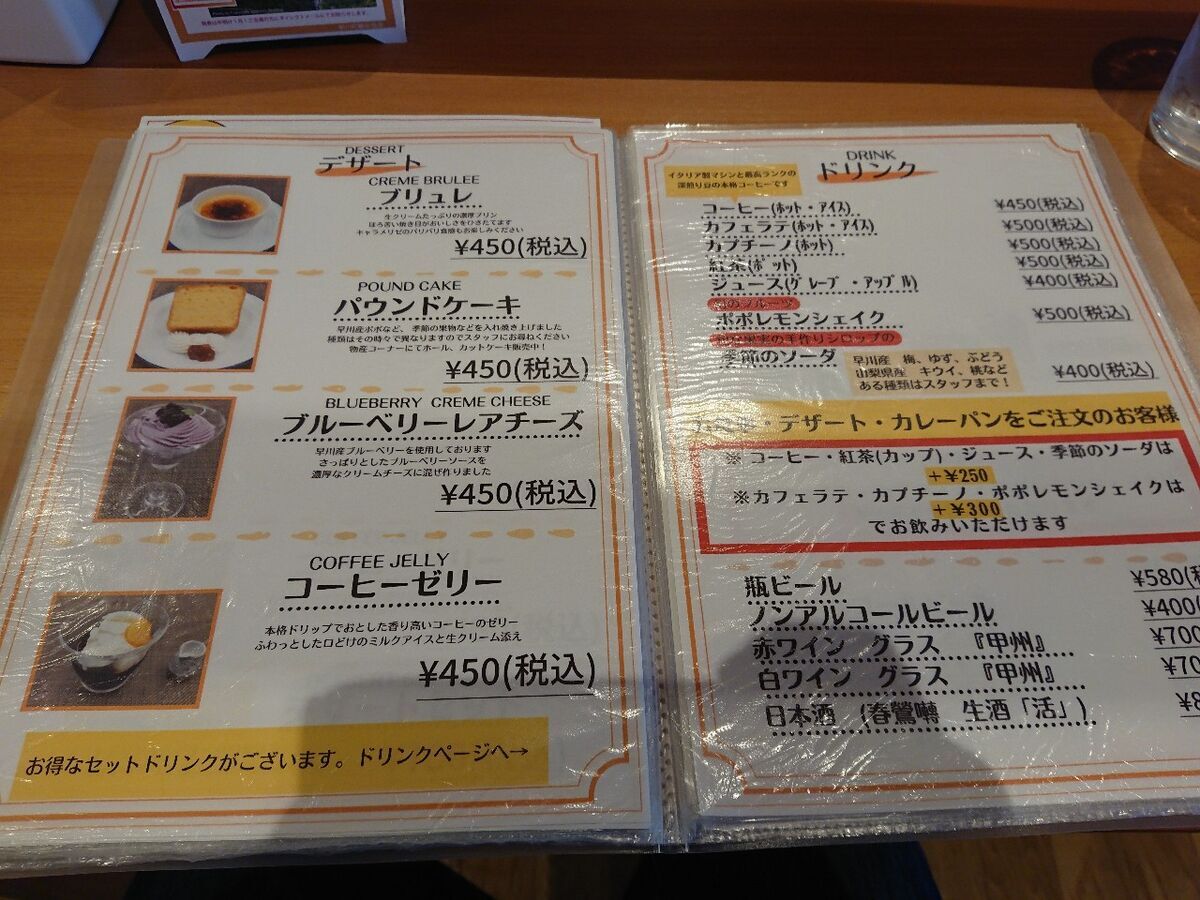 DESSERT
デザート
CREME BRULEE
ブリュレ
生クリームたっぷりの濃厚プリン
ほろ苦い焼き目がおいしさをひきたてます
キャラメリゼのパリパリ食感もお楽しみください
¥450(税込)
POUND CAKE
パウンドケーキ
早川産ポポなど、季節の果物などを入れ焼き上げました
種類はその時々で異なりますのでスタッフにお尋ねください
物産コーナーにてホール、カットケーキ販売中！
¥450(税込)
BLUEBERRY CREME CHEESE
ブルーベリーレアチーズ
早川産ブルーベリーを使用しております
さっぱりとしたブルーベリーソースを
濃厚なクリームチーズに混ぜ作りました
¥450(税込)
COFFEE JELLY
コーヒーゼリー
本格ドリップでおとした香り高いコーヒーのゼリー
ふわっとした口どけのミルクアイスと生クリーム添え
¥450(税込)
お得なセットドリンクがございます。ドリンクページへ→
DRINK
ドリンク
イタリア製マシンと最高ランクの
深煎り豆の本格コーヒーです
コーヒー(ホット・アイス) ¥450(税込)
カフェラテ(ホット・アイス) ¥500(税込)
カプチーノ(ホット) ¥500(税込)
紅茶(ポット) ¥500(税込)
ジュース(グレープ・アップル) ¥400(税込)
のフルーツ
ポポレモンシェイク ¥500(税込)
果実の手作りシロップの
季節のソーダ
早川産 梅、ゆず、ぶどう
山梨県産 キウイ、桃など
ある種類はスタッフまで！
¥400(税込)
・デザート・カレーパンをご注文のお客様
※コーヒー・紅茶(カップ)・ジュース・季節のソーダは
+¥250
※カフェラテ・カプチーノ・ポポレモンシェイクは
+¥300
でお飲みいただけます
瓶ビール ¥580(税
ノンアルコールビール ¥400(
赤ワイン グラス 『甲州』 ¥700
白ワイン グラス 『甲州』 ¥70
日本酒 (春鶯囀 生酒「活」) ¥8